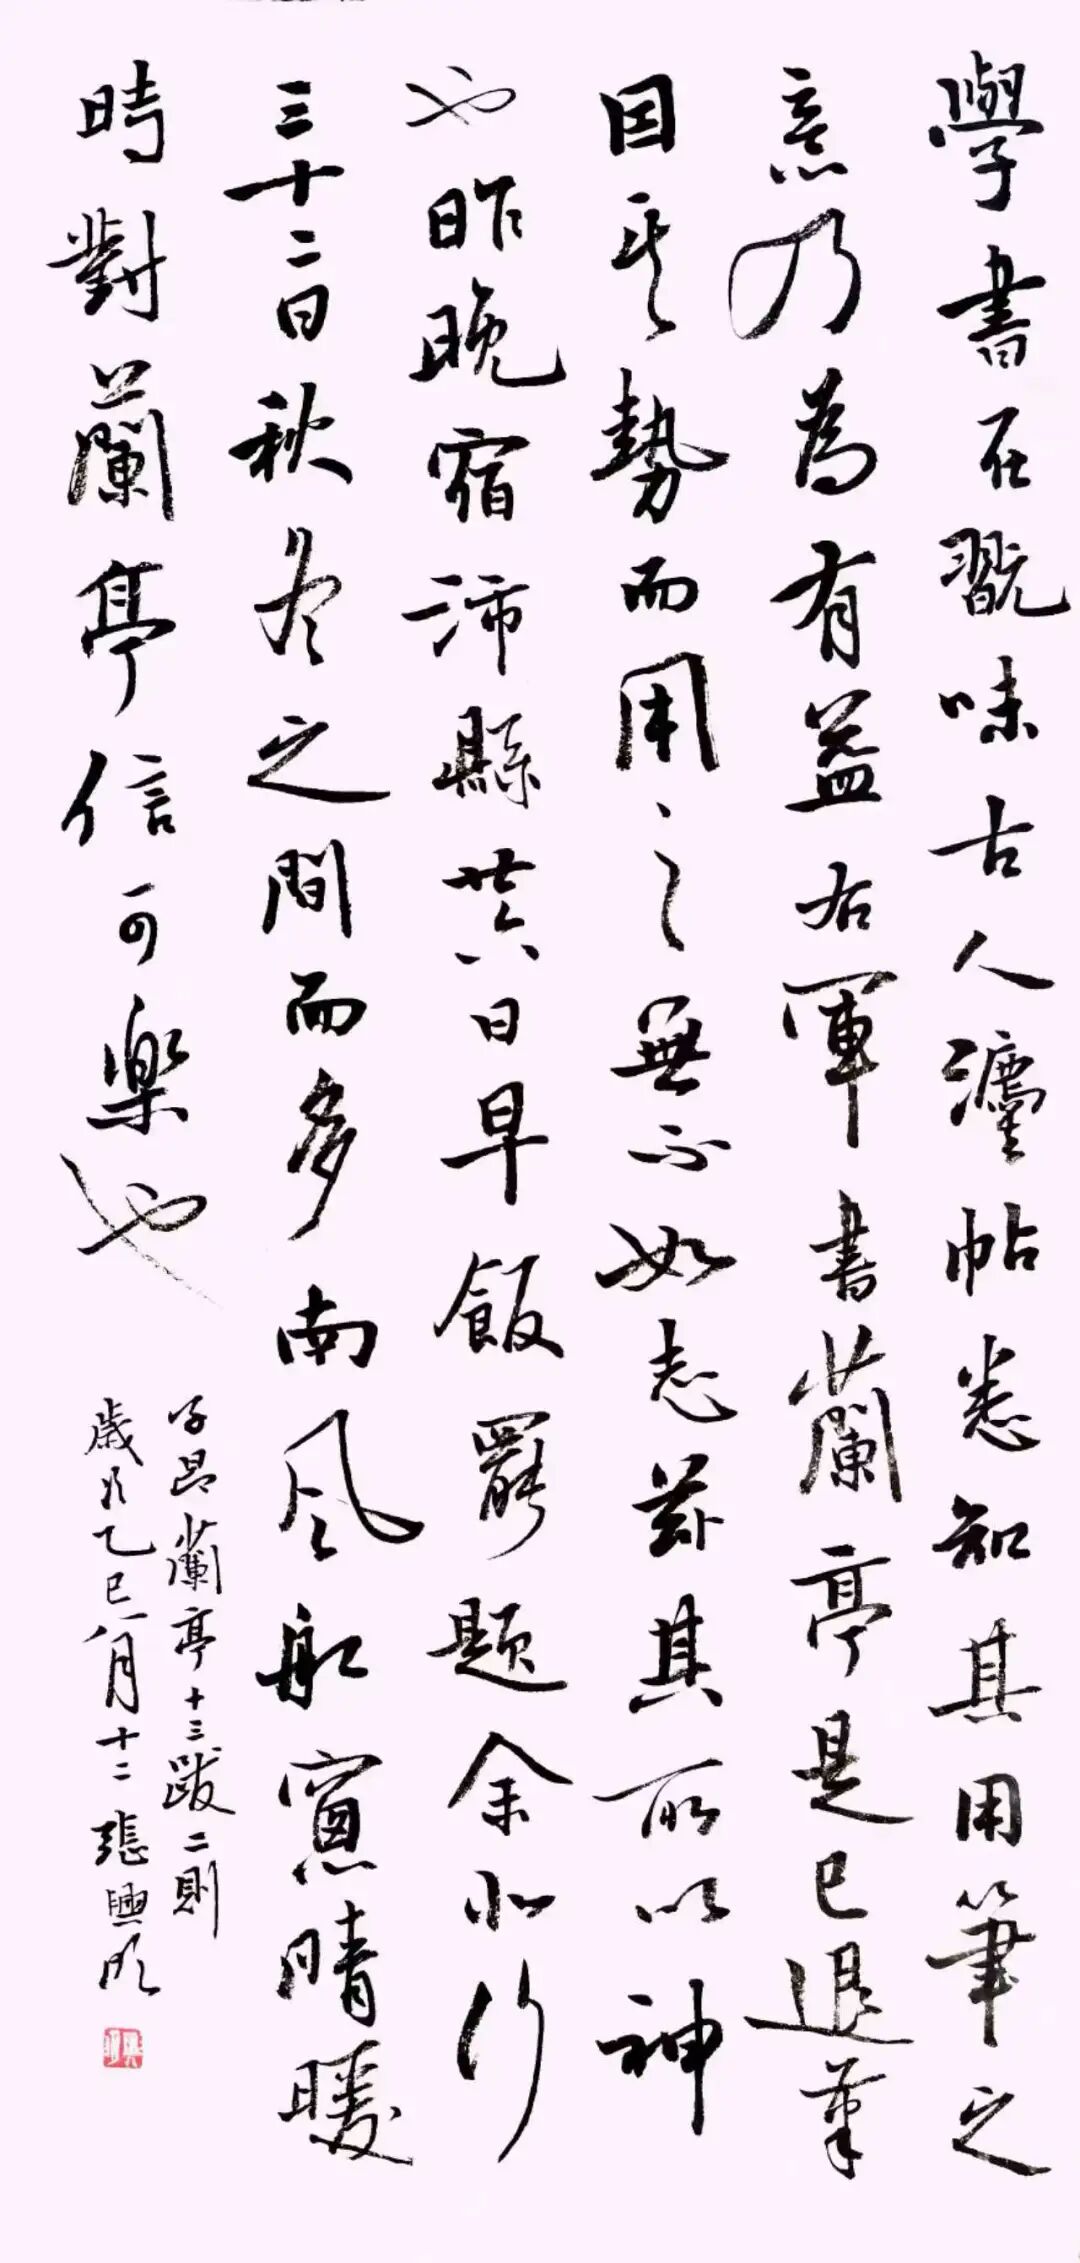 學書在翫味古人灋帖悉知其用筆之
意乃為有益右軍書蘭亭是已退筆
因其勢而用之無不如志茲其所以神
也昨晚宿沛縣廿六日早飯罷題余北行
三十二日秋冬之間而多南風船窻晴暖
時對蘭亭信可樂也
子昂蘭亭十三跋二則
歲次乙巳八月十二張興